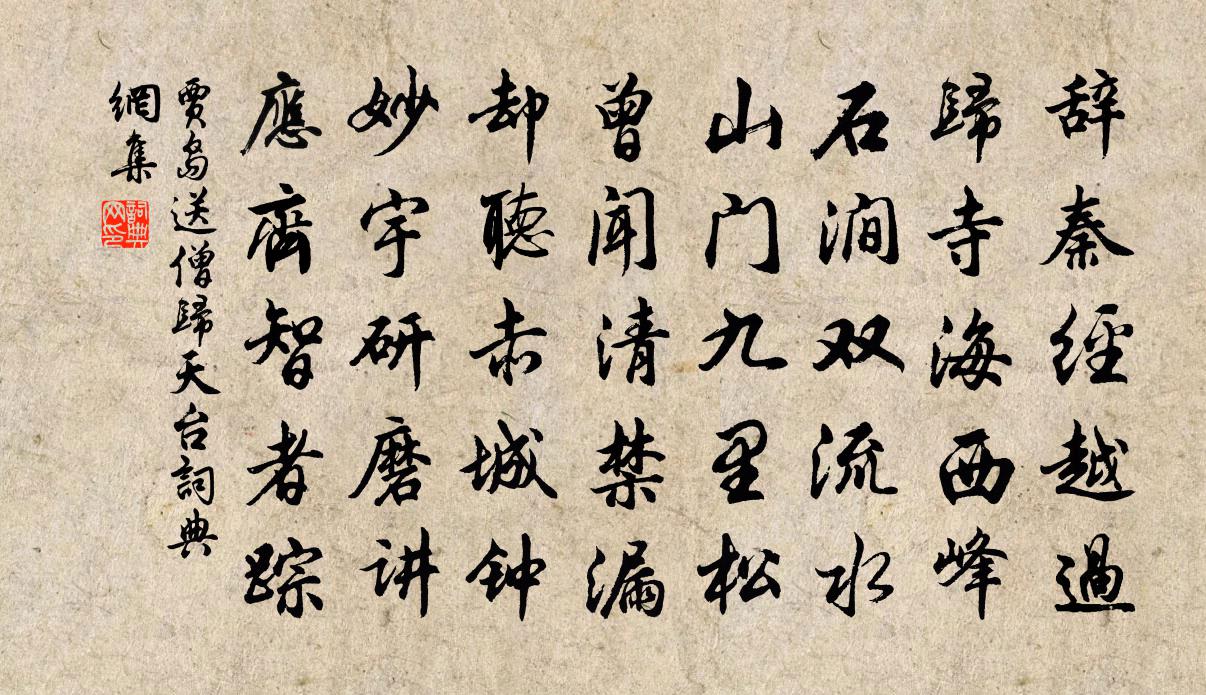 辞秦经越過
歸寺海西峰
石涧双流水
山门九里松
曾闻清禁漏
却聽赤城钟
妙宇研磨讲
應齊智者踪
賈岛送僧歸天台詞典
網集
詞典网印